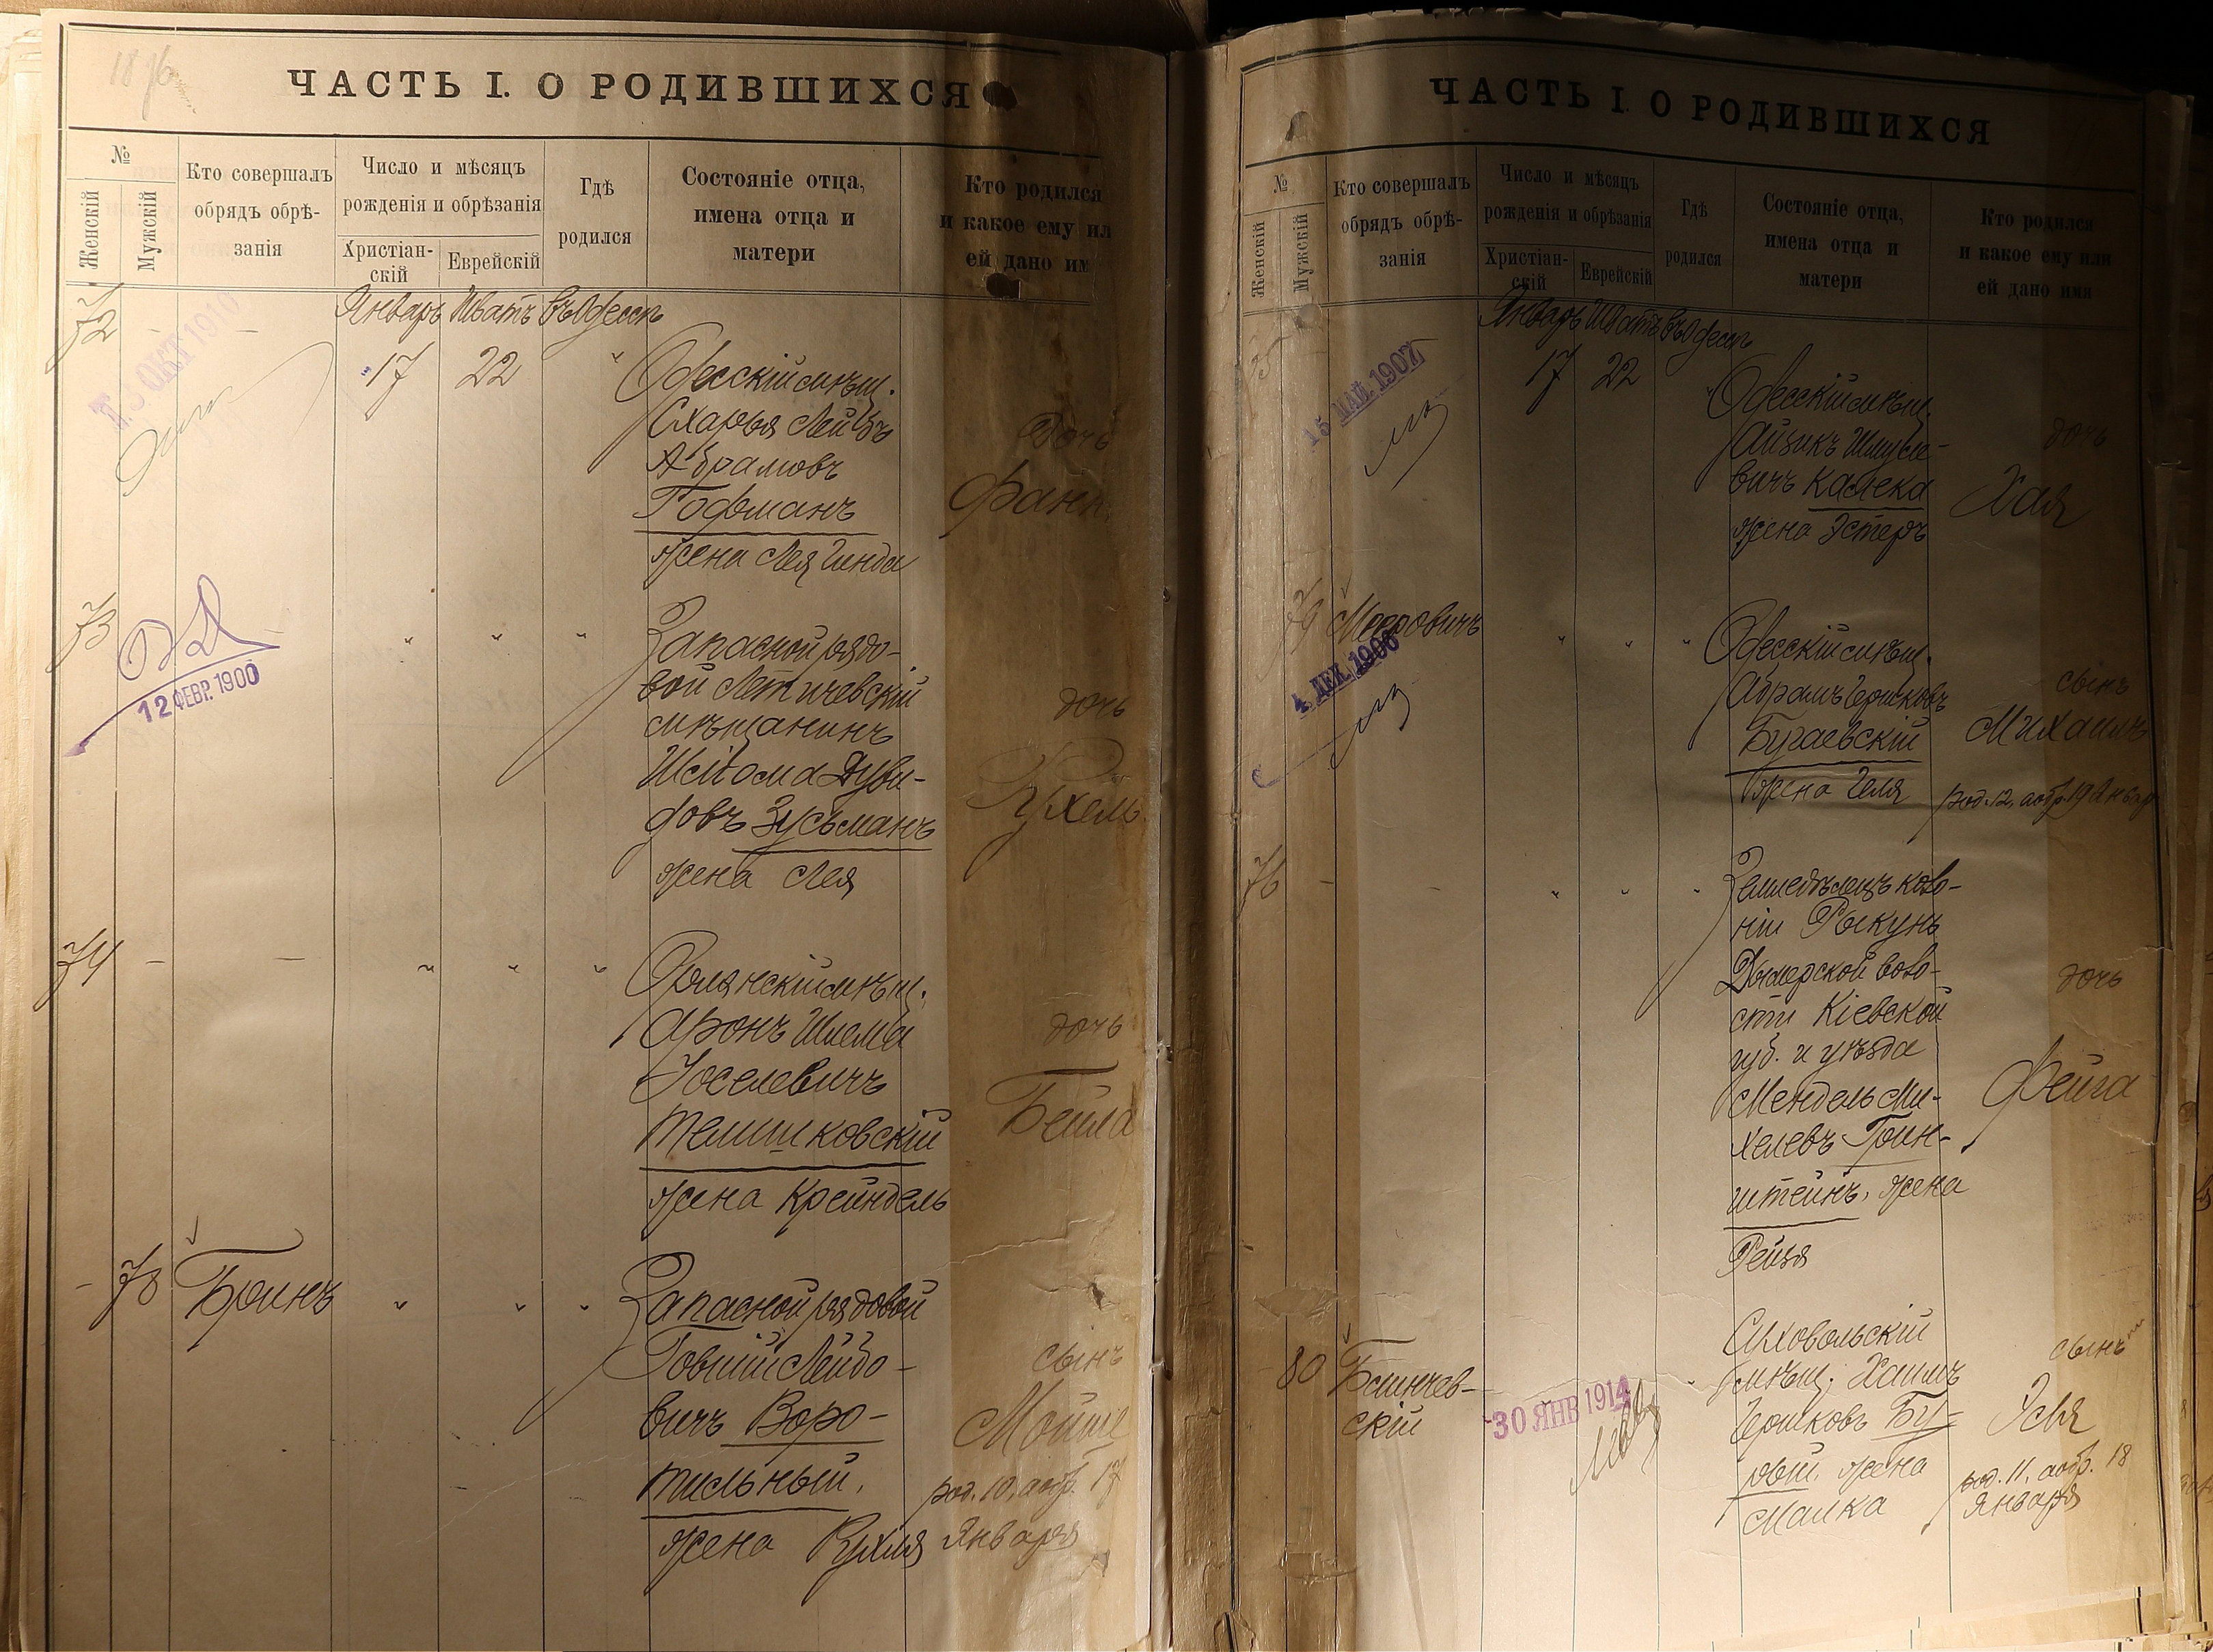 1896
ЧАСТЬ I. О РОДИВШИХСЯ
№
Женскій
Мужскій
Кто совершалъ
обрядъ обрѣ-
занія
Число и мѣсяцъ
рожденія и обрѣзанія
Христіан-
скій
Еврейскій
Гдѣ
родился
Состояніе отца,
имена отца и
матери
Кто родился
и какое ему ил
ей дано им
Январь Шватъ Въ Одессѣ
72
— 17 22 "
Одесскій мѣщ.
Схарья Лейбъ
Абрамовъ
Гофманъ
жена Лея Гинда
дочь
Фани
ОКТ 1910
73
" " "
Запасной рядо-
вой Летичевскій
мѣщанинъ
Шліома Дуви-
довъ Зусьманъ
жена Лея
дочь
Рухель
12 ФЕВР. 1900
74 — — " " "
мѣщ.
Аронъ Шлема
Іоселевичъ
Телишковскій
жена Крейндель
дочь
Бейла
- 78 Бринъ " " "
Запасной рядовой
Товшій Лейбо-
вичъ Воро-
тильный,
жена Рухля
сынъ
Мойше
род. 10, аобр. 17
Января
ЧАСТЬ I. О РОДИВШИХСЯ
№
Женскій
Мужскій
Кто совершалъ
обрядъ обрѣ-
занія
Число и мѣсяцъ
рожденія и обрѣзанія
Христіан-
скій
Еврейскій
Гдѣ
родился
Состояніе отца,
имена отца и
матери
Кто родился
и какое ему или
ей дано имя
Январь Шватъ Въ Одессѣ
75
17 22 "
Одесскій мѣщ.
Айзикъ Шмуле-
вичъ Калека
жена Эстеръ
дочь
Хая
15 МАЙ 1907
79 Мееровичъ " " "
Одесскій мѣщ.
Абрамъ Гершковъ
Бугаевскій
жена Геля
сынъ
Михаилъ
род. 12, аобр. 19 Январ
4 ДЕК. 1906
76 — — " " "
Земледѣлецъ коло-
ніи Рыкунь
Дымерской воло-
сти Кіевской
губ. и уѣзда
Мендель Ми-
хелевъ Грин-
штейнъ, жена
Рейзя
дочь
Фейга
80
скій
30 ЯНВ 1914
мѣщ. Хаимъ
Гершковъ Бу-
рый, жена
Малка
сынъ
род. 11, аобр. 18
Января